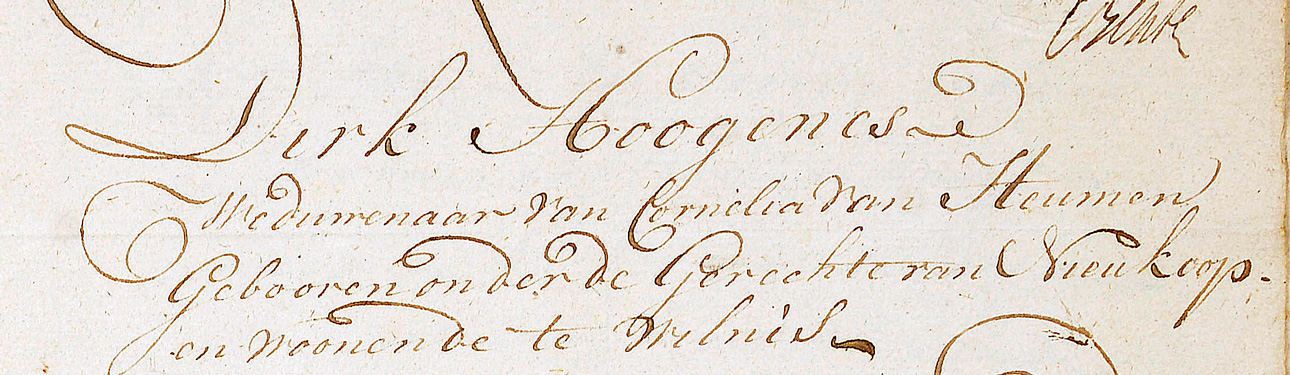 Dirk Hoogenes
Weduwenaar van Cornelia van Heumen
Gebooren onder de Gerechte van Nieukoop-
en woonende te Wilnis